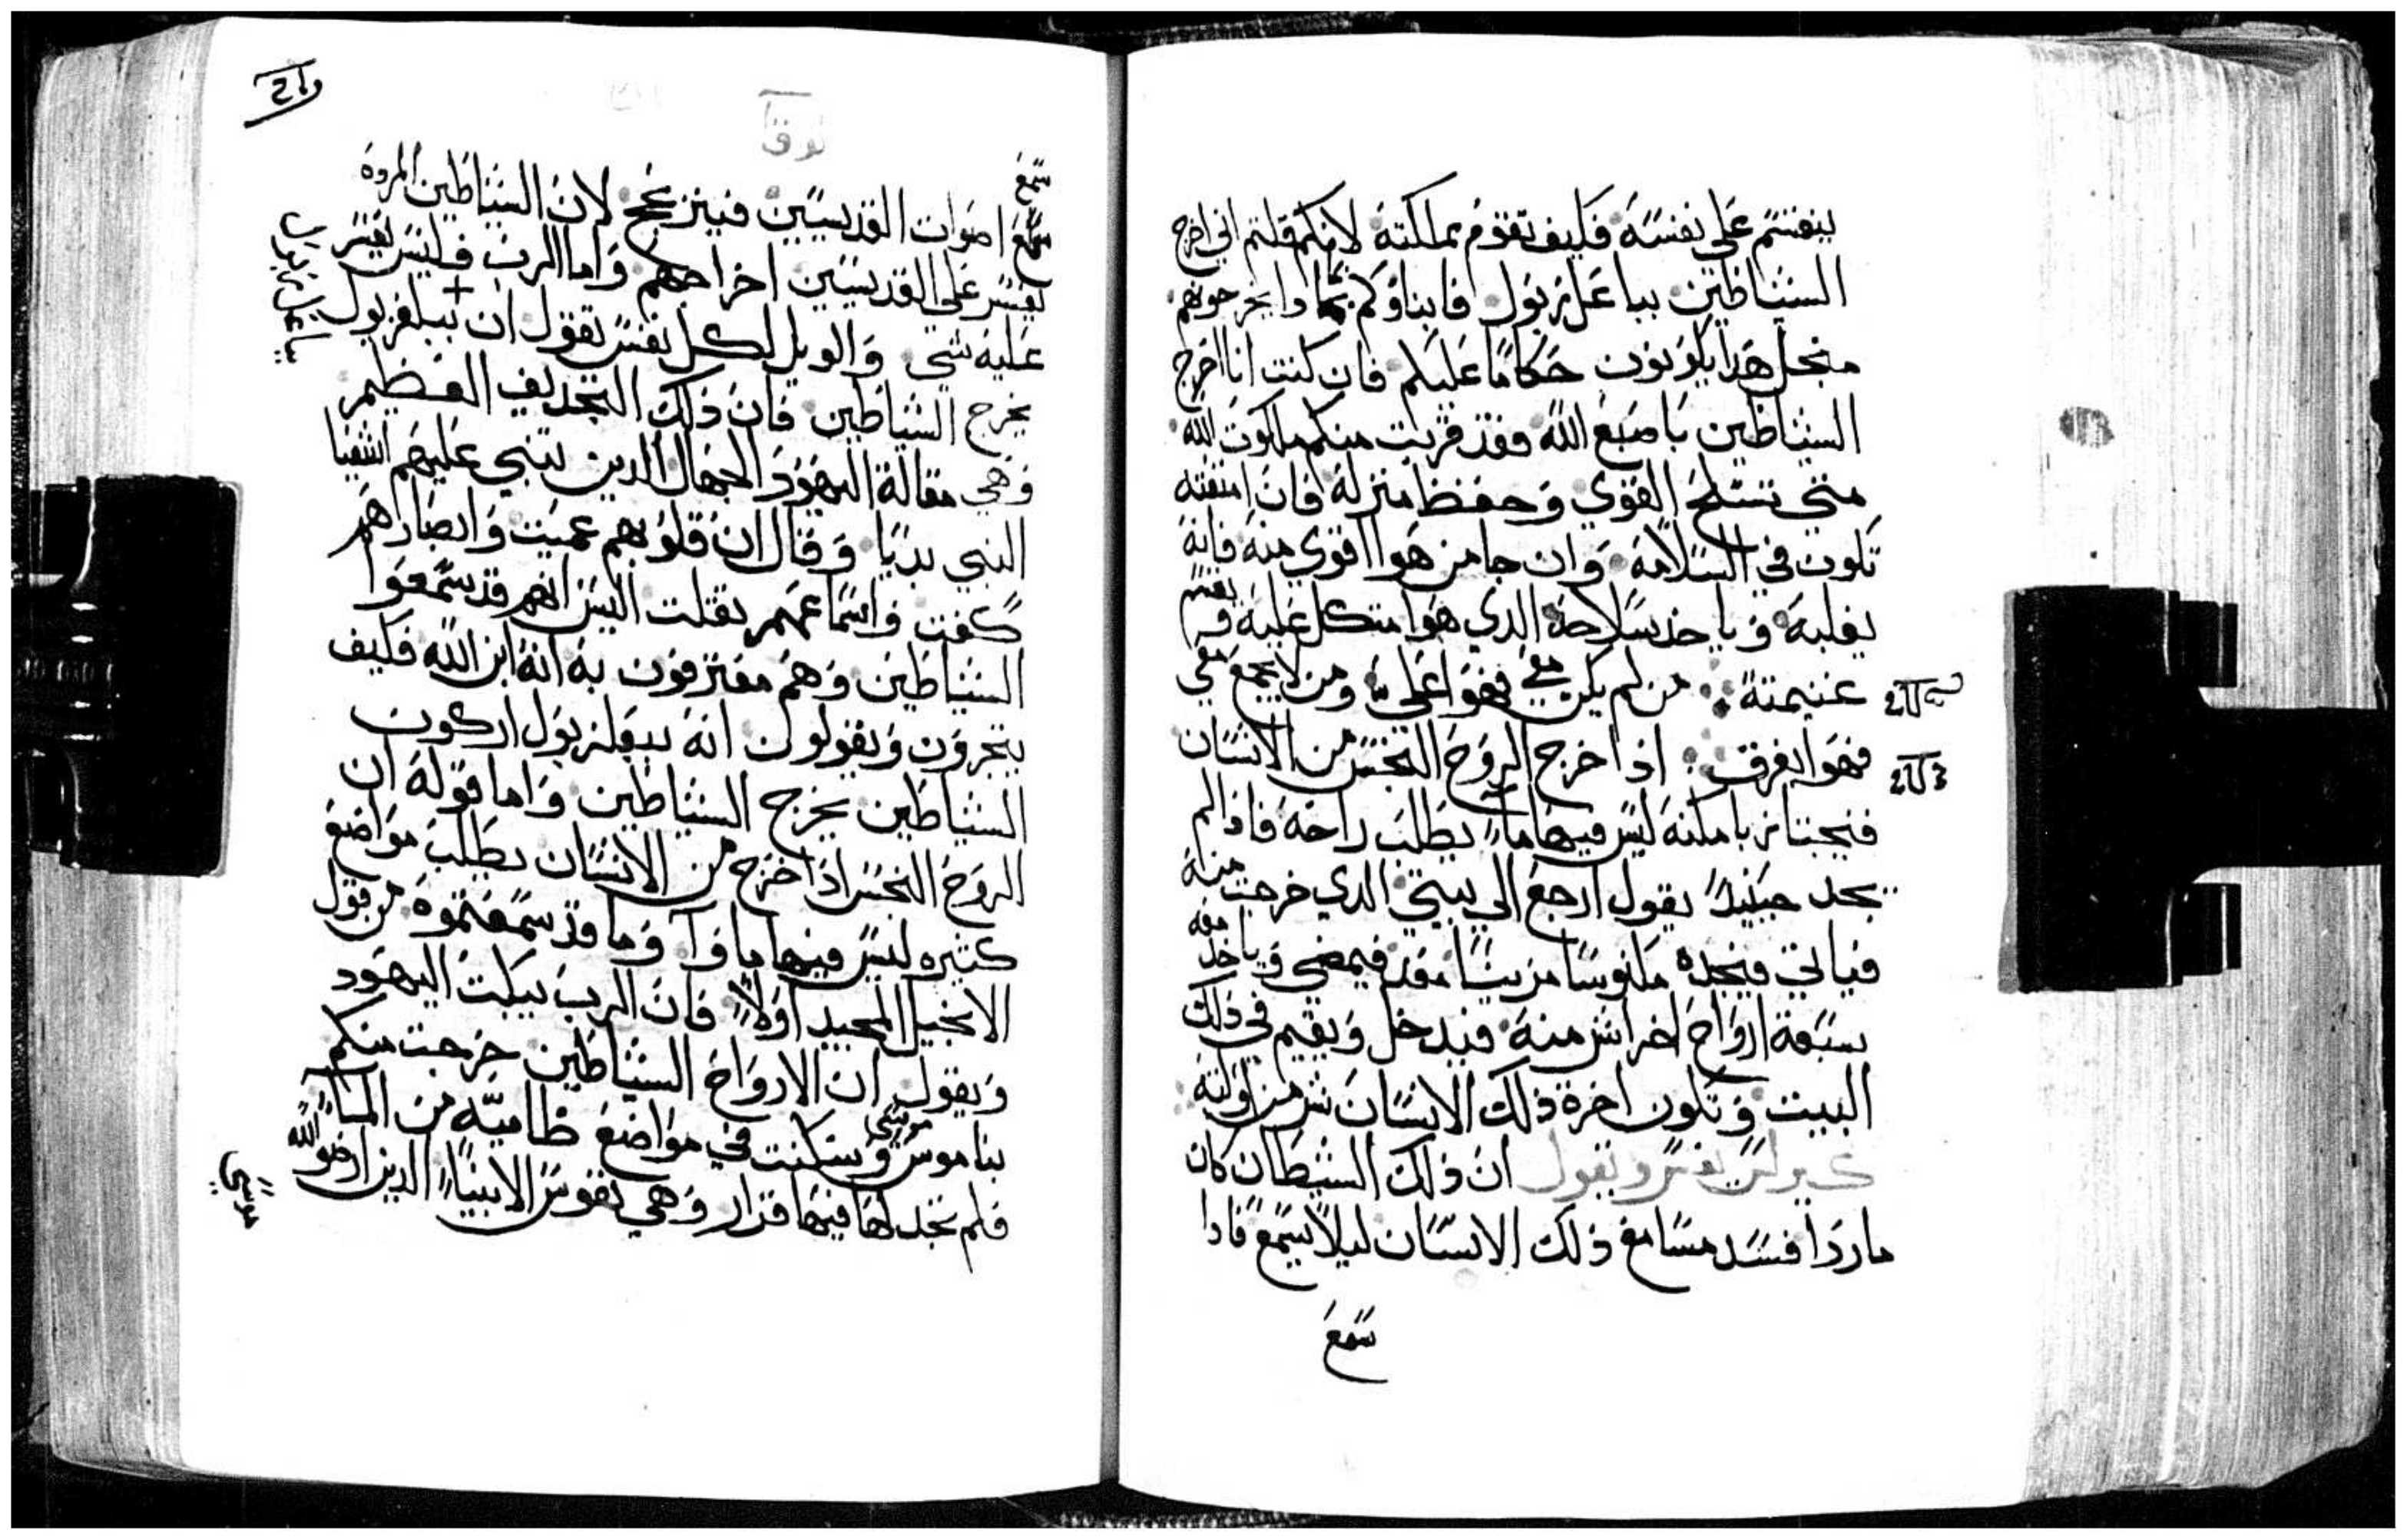 ينقسم على نفسه فكيف تقوم مملكته لانكم قلتم اني اخرج
الشياطين بباعلزبول فابناوكم بماذا يخرجونهم
منجل هدا يكونون حكاما عليكم فان كنت انا اخرج
الشياطين باصبع الله فقد قربت منكم ملكوت الله
متى تسلح القوي وحفظ منزله فان امتعته
تكون في السلامة وان جا من هوا اقوي منه فانه
يغلبه وياخد سلاحه الدي هوا متكل عليه ويقسم
غنيمته من لم يكن معي فهوا علي ومن لا يجمع معي
فهوا يفرق اذا خرج الروح النجس من الانسان
فيجتاز بامكنه ليس فيها ماء يطلب راحة فاذا لم
يجد حينيدً يقول ارجع الي بيتي الدي خرجت منه
فياتي فيجده مكنوسا مزينا فيمضي وياخد معه
سبعة ارواح اخر اشر منه فيدخل ويقيم في ذلك
البيت وتكون اخرة ذلك الانسان شر من اولته
كيرلس يفسر ويقول ان ذلك الشيطان كان
ماردا فسد مسامع ذلك الانسان ليلا يسمع فاذا
سمع
لوقا
سمع
سمع اصوات القديسين فينزعج لان الشياطين المروه
يعسر على القديسين اخراجهم واما الرب فليس يعسر
عليه شي والويل لكل نفس تقول ان ببلعزبول
يخرج الشياطين فان ذلك التجديف العظيم
وهي مقالة اليهود الجهال الدين تنبي عليهم اشعيا
النبي بديا وقال ان قلوبهم عميت وابصارهم
كفت واسماعهم تقلت اليس انهم قد سمعوا
الشياطين وهم معترفون به انه ابن الله فكيف
يتجرون ويقولون انه ببعلزبول اركون
الشياطين يخرج الشياطين واما قوله ان
الروح النجس اذا خرج من الانسان يطلب مواضع
كثيره ليس فيها ماوآ وما قد سمعتموه من قول
الانجيل المجيد اولاً فان الرب يبكت اليهود
ويقول ان الارواح الشياطين خرجت منكم
بناموس موسى وسكنت في مواضع ظاميّه من الماء
فلم تجد لها فيها قرار وهي نفوس الانبياء الدين ارضوا الله
موسى